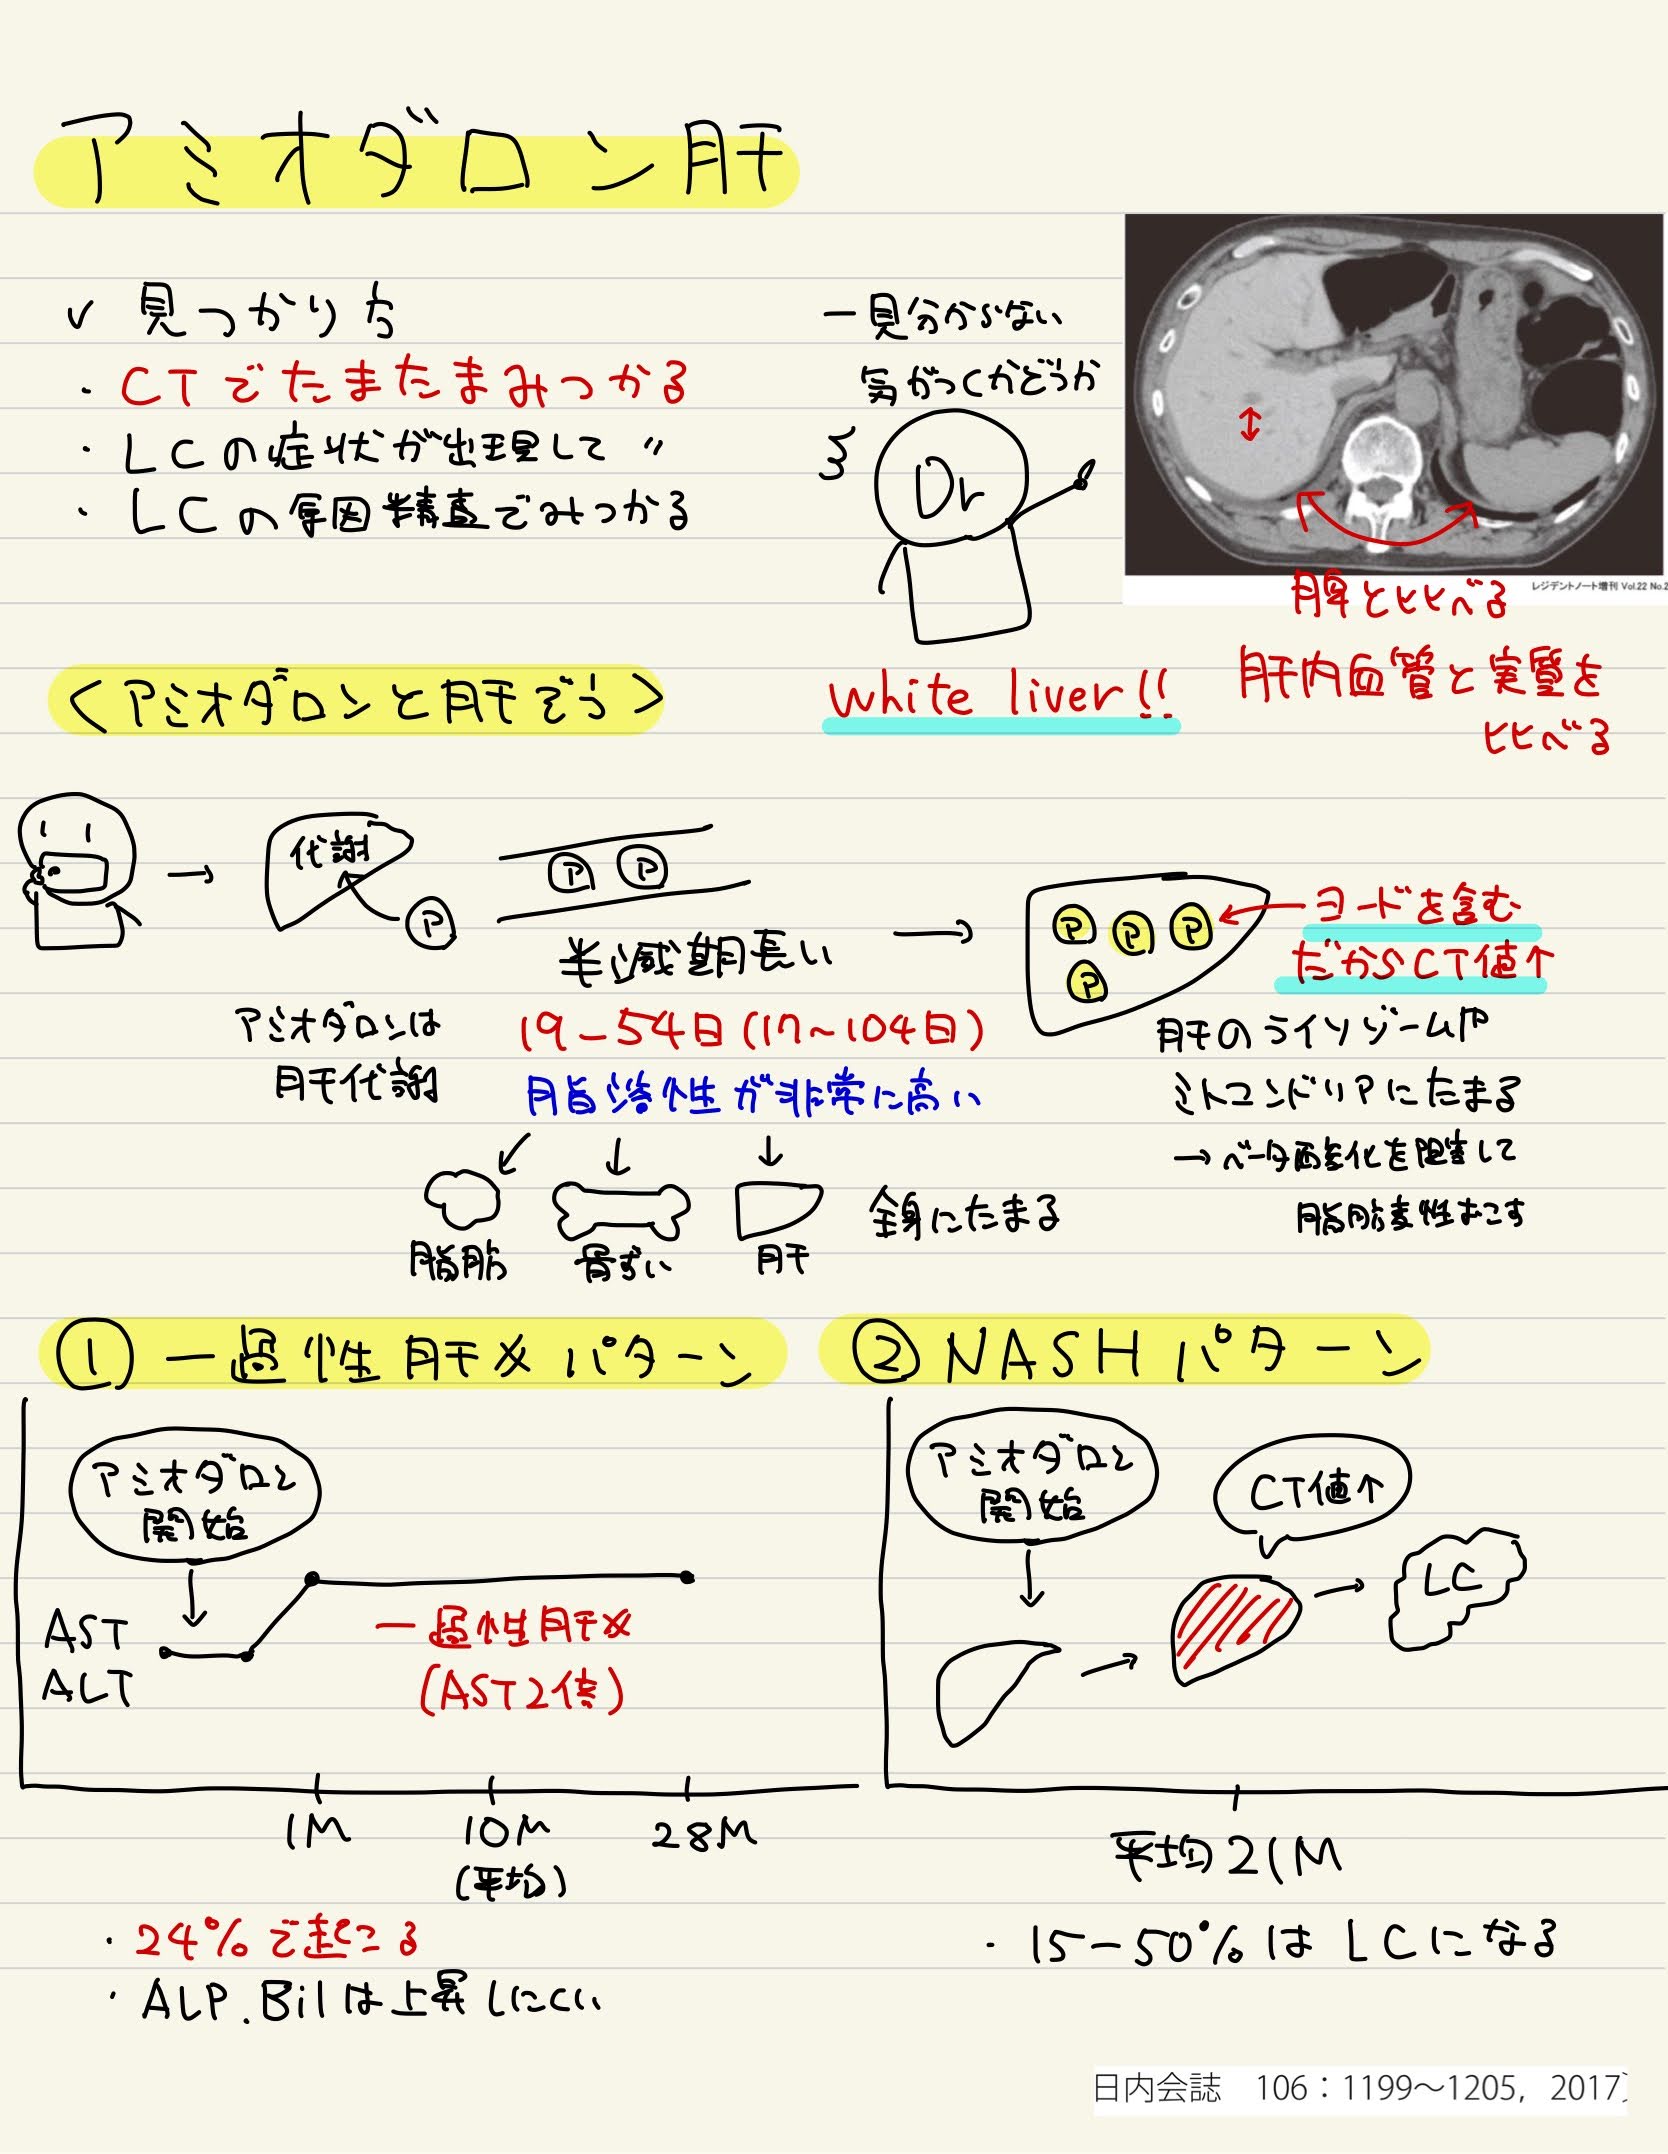 アミオダロン肝
✓ 見つかり方
・CTでたまたまみつかる
・LCの症状が出現して 〃
・LCの原因精査でみつかる
一見分からない
気がつくかどうか
Dr
レジデントノート増刊 Vol.22 No.2
脾と比べる
肝内血管と実質を
比べる
white liver!!
<アミオダロンと肝ぞう>
代謝
P
P P
P P P
P
ヨードを含む
だからCT値↑
半減期長い
アミオダロンは
肝代謝
19-54日(17~104日)
脂溶性が非常に高い
脂肪 骨ずい 肝
全身にたまる
肝のライソゾームや
ミトコンドリアにたまる
→ベータ酸化を阻害して
脂肪変性おこす
① 一過性肝メパターン
アミオダロン
開始
AST
ALT
一過性肝メ
(AST2倍)
1M 10M 28M
(平均)
・24%で起こる
・ALP.Bilは上昇しにくい
② NASHパターン
アミオダロン
開始
CT値↑
LC
平均21M
・15-50%はLCになる
日内会誌 106：1199〜1205，2017